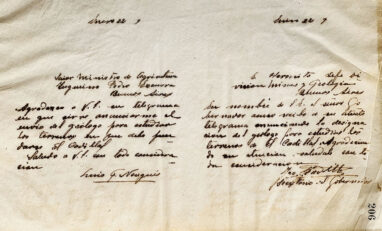 Enero de 9
Señor Ministro de Agricultura
Ingeniero Pedro
Buenos Aires
Agradezco a V.E. su telegrama
en que anunciarme el
envio del geólogo para estudiar
los terrenos en que debe fun-
darse El Cadillal
Saludo a V.E. con toda consideracion
Lucio G. Nougués
Enero de 9
E. Hermitte Jefe Di-
vision Minas y Geologia
Buenos Aires
En nombre de S.E. el señor Go-
bernador acuso recibo a su atento
telegrama anunciando la designa-
cion del geólogo para estudiar los
terrenos El Cadillal Agradeciendo
su atencion saludale con to-
da consideracion
Secretario d. Gobernador
206